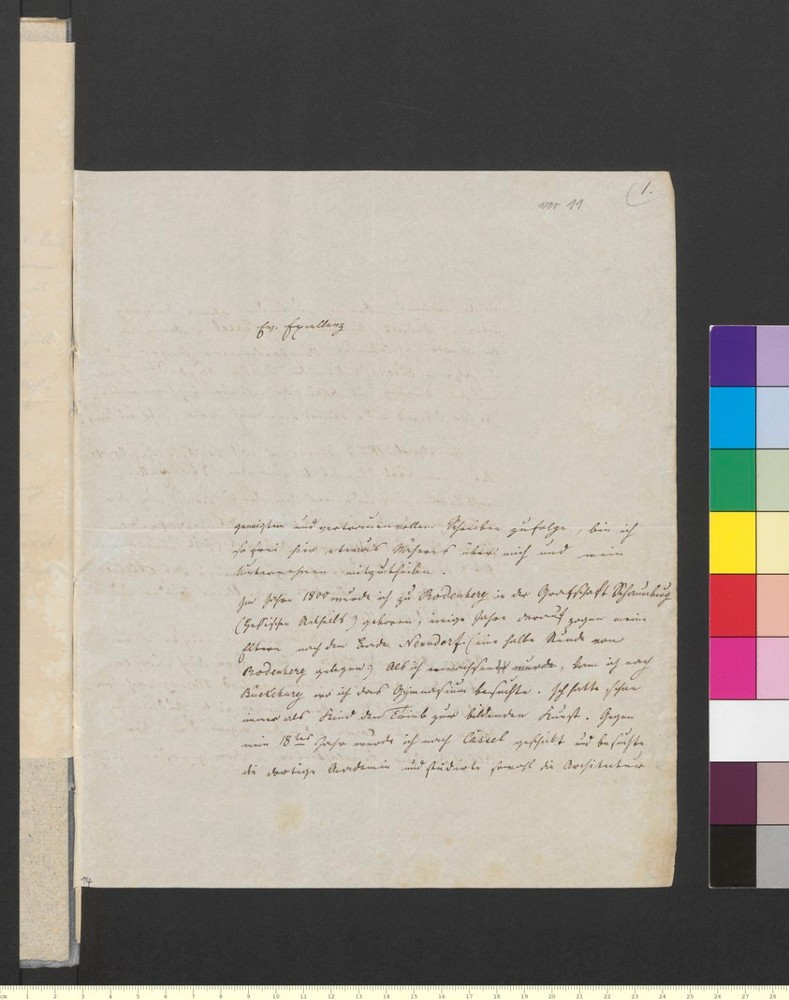 1.
vor 11
Ew. Excellenz
geneigtem und vertrauenvollen Schreiben zufolge, bin ich
so frei hier etwas Näheres über mich und mein
Unternehmen mitzutheilen.
Im Jahre 1800 wurde ich zu Rodenberg in der Grafschaft Schaumburg
(Hessischen Antheils) geboren, einige Jahre darauf zogen meine
Eltern nach dem Bade Nenndorf (eine halbe Stunde von
Rodenberg gelegen.) Als ich wurde, kam ich nach
Bückeburg wo ich das Gymnasium besuchte. Ich hatte schon
immer als Kind den Trieb zur bildenden Kunst. Gegen
mein 18tes Jahr wurde ich nach Cassel geschickt und besuchte
die dortige Academie und studirte sowohl die Architectur
14